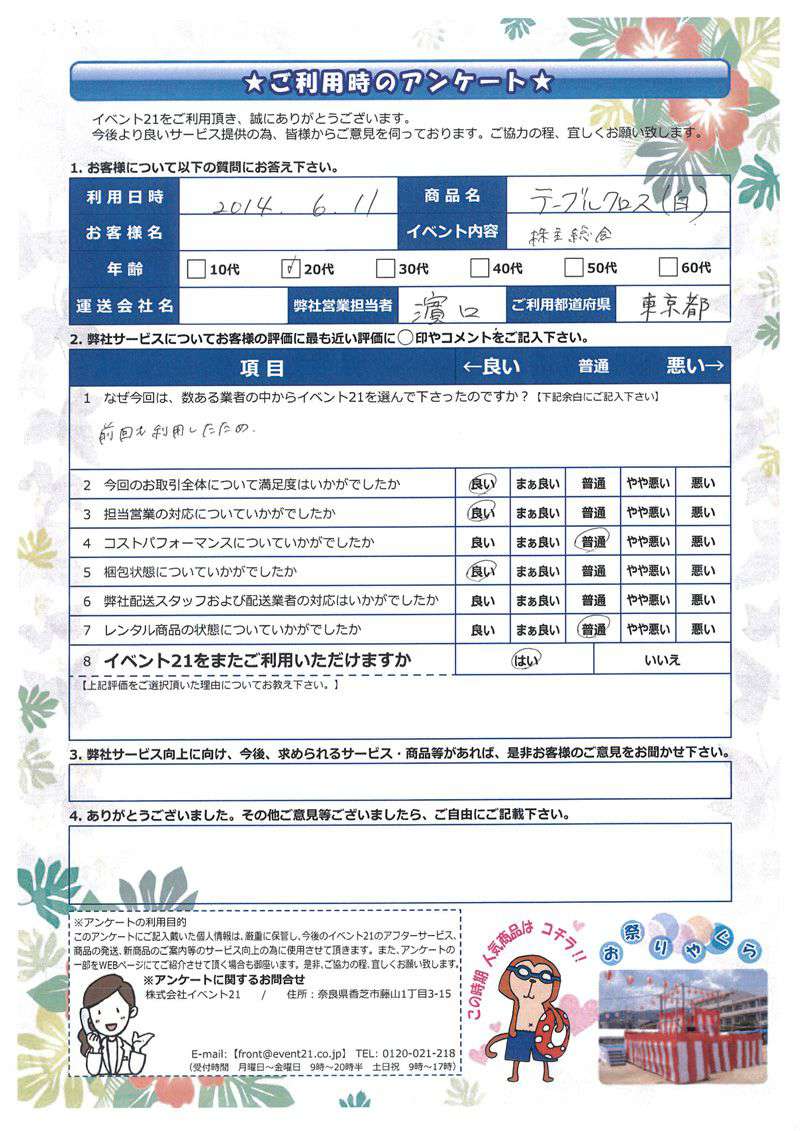 ★ご利用時のアンケート★
イベント21をご利用頂き、誠にありがとうございます。
今後より良いサービス提供の為、皆様からご意見を伺っております。ご協力の程、宜しくお願い致します。
1. お客様について以下の質問にお答え下さい。
利用日時 2014. 6. 11 商品名 テーブルクロス(白)
お客様名 イベント内容 株主総会
年齢 10代 ✓20代 30代 40代 50代 60代
運送会社名 弊社営業担当者 濱口 ご利用都道府県 東京都
2. 弊社サービスについてお客様の評価に最も近い評価に○印やコメントをご記入下さい。
項目 ←良い 普通 悪い→
1 なぜ今回は、数ある業者の中からイベント21を選んで下さったのですか？【下記余白にご記入下さい】
前回も利用したため.
2 今回のお取引全体について満足度はいかがでしたか 良い まぁ良い 普通 やや悪い 悪い
3 担当営業の対応についていかがでしたか 良い まぁ良い 普通 やや悪い 悪い
4 コストパフォーマンスについていかがでしたか 良い まぁ良い 普通 やや悪い 悪い
5 梱包状態についていかがでしたか 良い まぁ良い 普通 やや悪い 悪い
6 弊社配送スタッフおよび配送業者の対応はいかがでしたか 良い まぁ良い 普通 やや悪い 悪い
7 レンタル商品の状態についていかがでしたか 良い まぁ良い 普通 やや悪い 悪い
8 イベント21をまたご利用いただけますか はい いいえ
【上記評価をご選択頂いた理由についてお教え下さい。】
3. 弊社サービス向上に向け、今後、求められるサービス・商品等があれば、是非お客様のご意見をお聞かせ下さい。
4. ありがとうございました。その他ご意見等ございましたら、ご自由にご記載下さい。
※アンケートの利用目的
このアンケートにご記入戴いた個人情報は、厳重に保管し、今後のイベント21のアフターサービス、
商品の発送、新商品のご案内等のサービス向上の為に使用させて頂きます。また、アンケートの
一部をWEBページにてご紹介させて頂く場合も御座います。是非、ご協力の程、宜しくお願い致します。
※アンケートに関するお問合せ
株式会社イベント21 / 住所：奈良県香芝市藤山1丁目3-15
E-mail:【front@event21.co.jp】 TEL: 0120-021-218
（受付時間 月曜日～金曜日 9時～20時半 土日祝 9時～17時）
この時期 人気商品は コチラ!!
お祭りやぐら